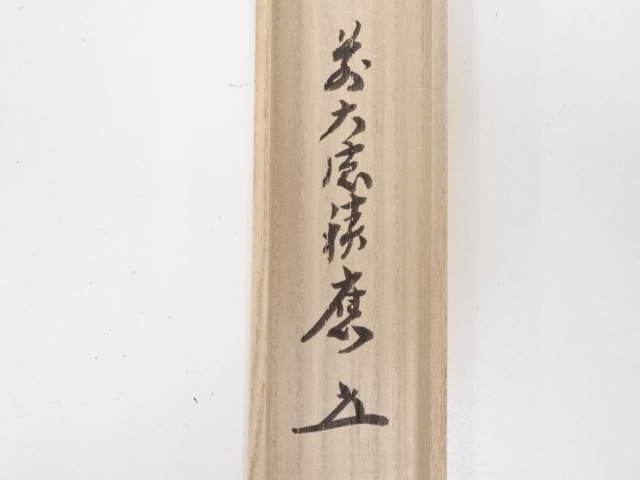 前大徳積應